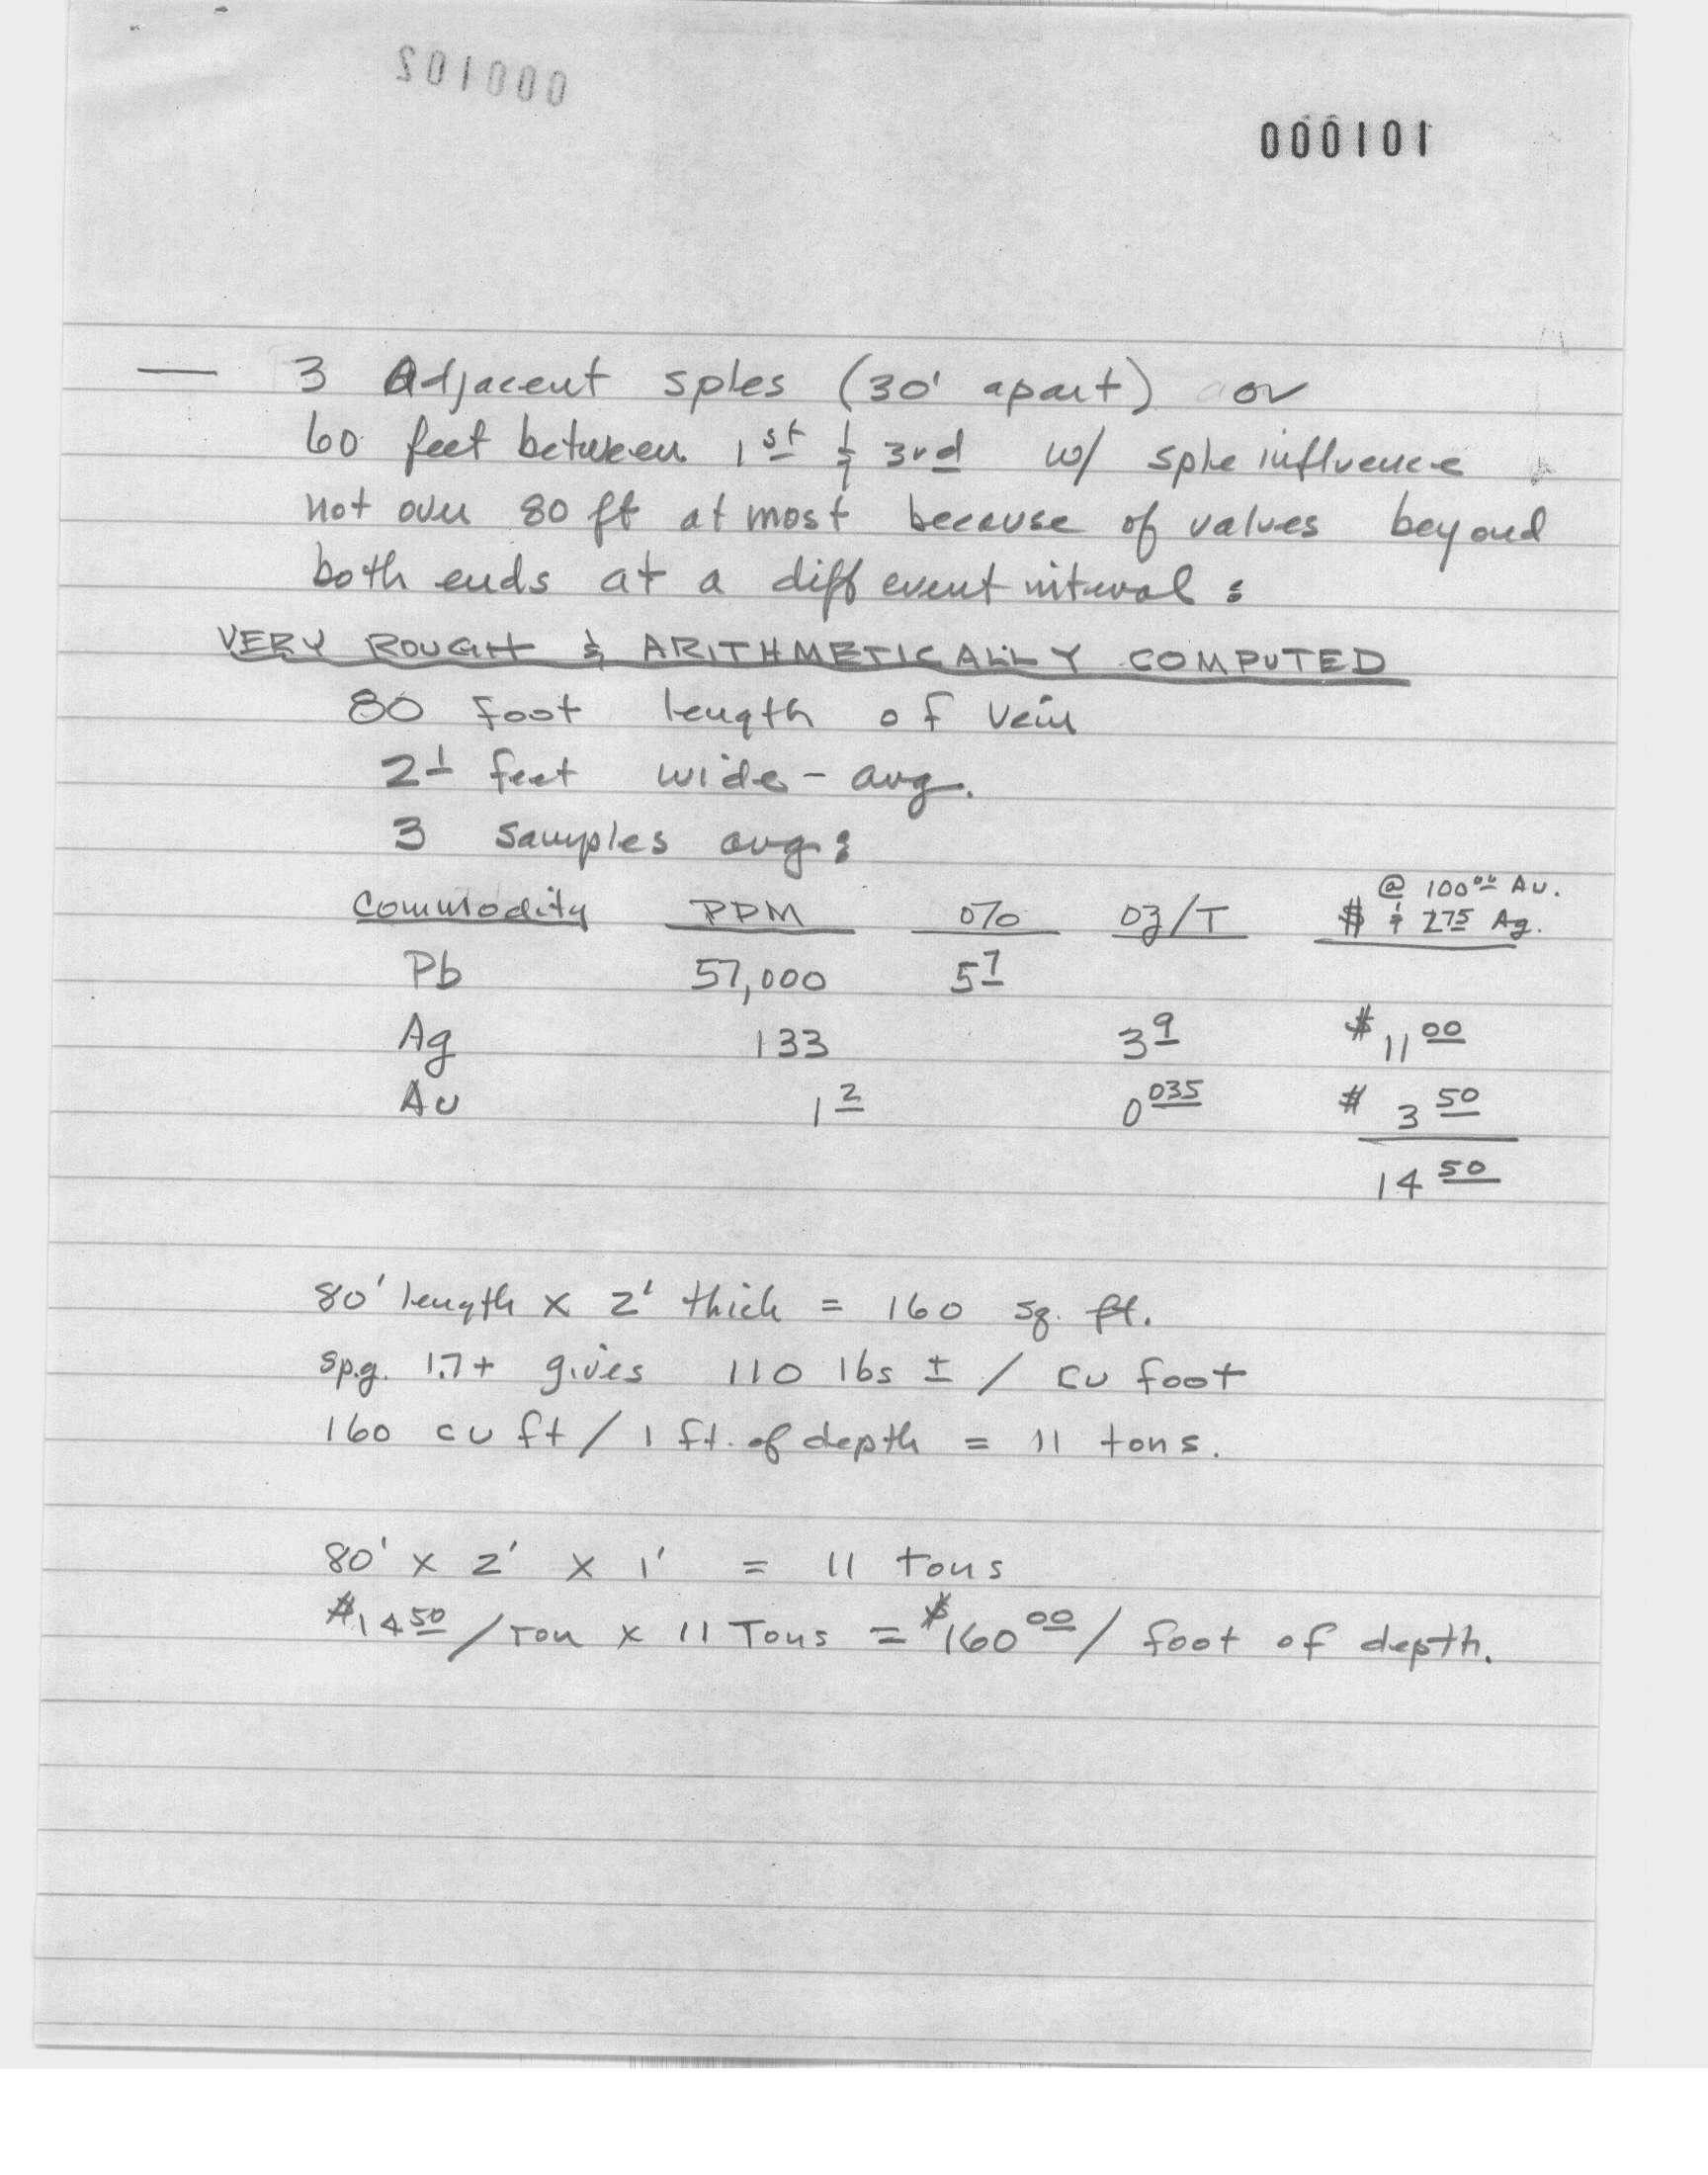 000102
000101
— 3 Adjacent sples (30' apart) or
60 feet between 1st & 3rd w/ sple influence
not over 80 ft at most because of values beyond
both ends at a different interval:
VERY ROUGH & ARITHMETICALLY COMPUTED
80 foot length of vein
2± feet wide - avg.
3 samples avg:
@ 100.00 Au.
Commodity PPM % oz/T $ & 2.75 Ag.
Pb 57,000 5.7
Ag 133 3.9 $11.00
Au 1.2 0.035 $ 3.50
14.50
80' length x 2' thick = 160 sq. ft.
sp.g. 1.7+ gives 110 lbs ± / cu foot
160 cu ft / 1 ft. of depth = 11 tons.
80' x 2' x 1' = 11 tons
$14.50 / Ton x 11 Tons = $160.00 / foot of depth.